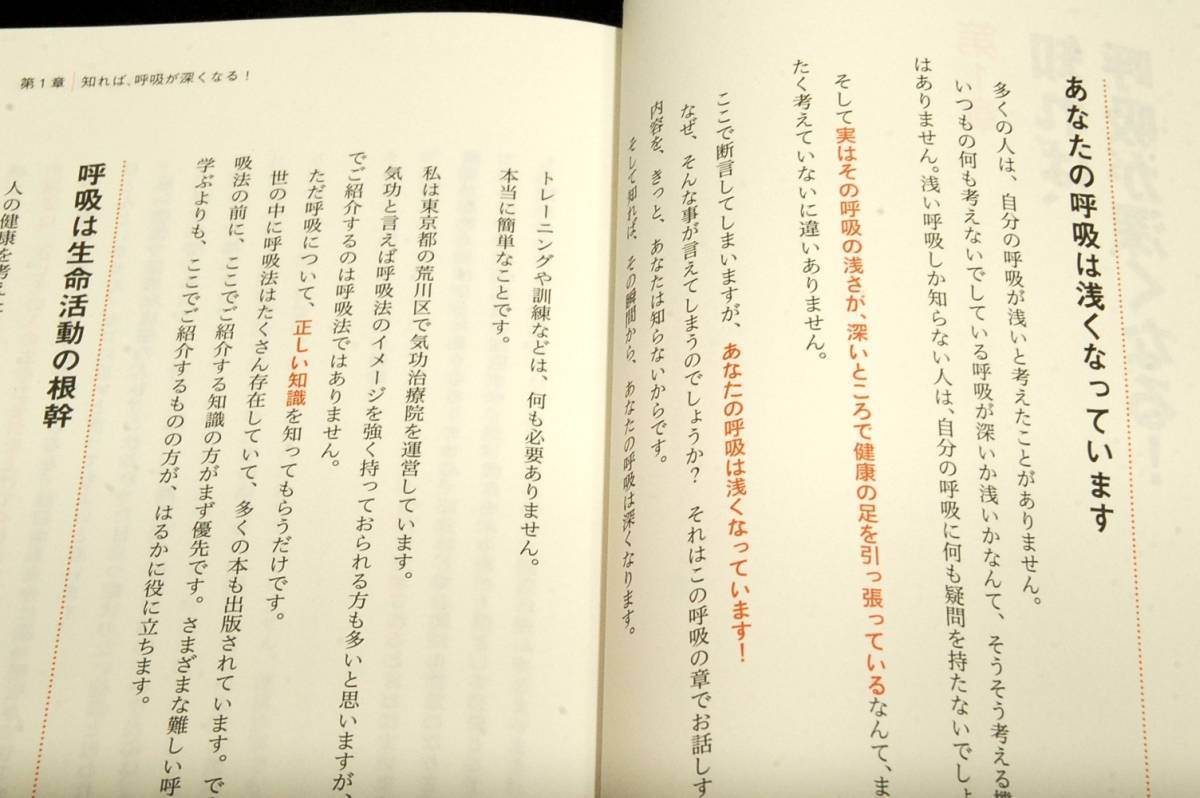 あなたの呼吸は浅くなっています
多くの人は、自分の呼吸が浅いと考えたことがありません。
いつもの何も考えないでしている呼吸が深いか浅いかなんて、そうそう考える機
はありません。浅い呼吸しか知らない人は、自分の呼吸に何も疑問を持たないでしょ
そして実はその呼吸の浅さが、深いところで健康の足を引っ張っているなんて、ま
たく考えていないに違いありません。
ここで断言してしまいますが、あなたの呼吸は浅くなっています！
なぜ、そんな事が言えてしまうのでしょうか？ それはこの呼吸の章でお話しす
内容を、きっと、あなたは知らないからです。
そして知れば、その瞬間から、あなたの呼吸は深くなります。
第1章 知れば、呼吸が深くなる！
トレーニングや訓練などは、何も必要ありません。
本当に簡単なことです。
私は東京都の荒川区で気功治療院を運営しています。
気功と言えば呼吸法のイメージを強く持っておられる方も多いと思いますが、
でご紹介するのは呼吸法ではありません。
ただ呼吸について、正しい知識を知ってもらうだけです。
世の中に呼吸法はたくさん存在していて、多くの本も出版されています。で
吸法の前に、ここでご紹介する知識の方がまず優先です。さまざまな難しい呼
学ぶよりも、ここでご紹介するものの方が、はるかに役に立ちます。
呼吸は生命活動の根幹
人の健康を考え